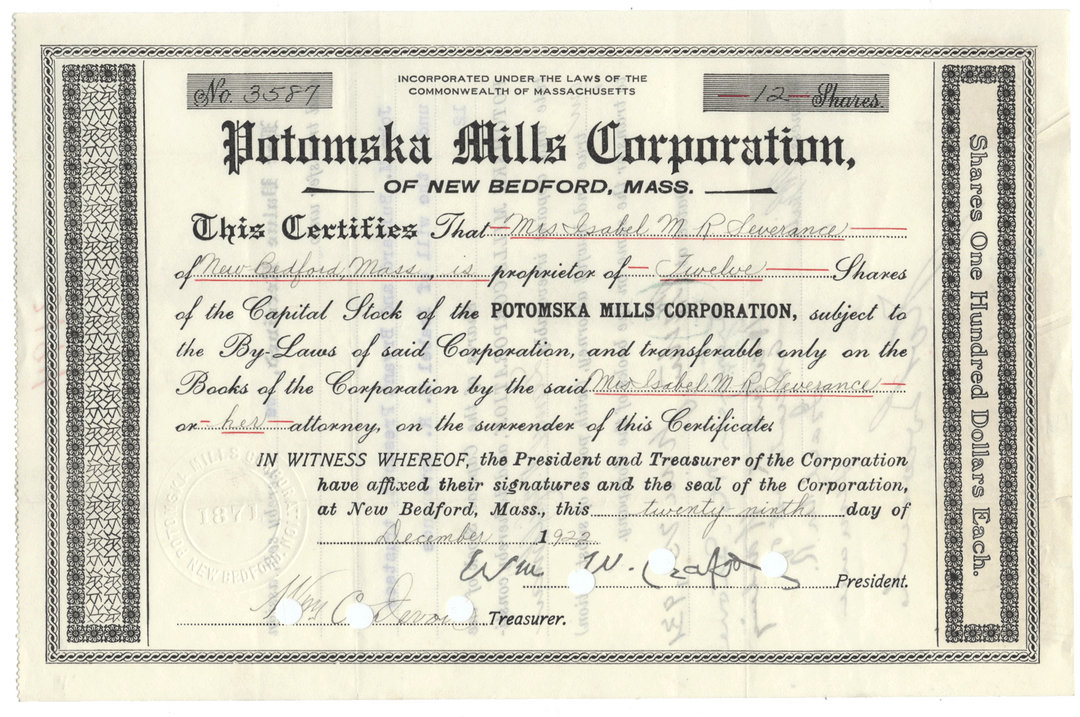 No. 3587
INCORPORATED UNDER THE LAWS OF THE
COMMONWEALTH OF MASSACHUSETTS
12 Shares.
Potomska Mills Corporation,
OF NEW BEDFORD, MASS.
This Certifies That Mrs Isabel M R Severance
of New Bedford, Mass., is proprietor of Twelve Shares
of the Capital Stock of the POTOMSKA MILLS CORPORATION, subject to
the By-Laws of said Corporation, and transferable only on the
Books of the Corporation by the said Mrs Isabel M R Severance
or her attorney, on the surrender of this Certificate.
IN WITNESS WHEREOF, the President and Treasurer of the Corporation
have affixed their signatures and the seal of the Corporation,
at New Bedford, Mass., this twenty ninth day of
December 1922
Wm W. Crapo President.
Treasurer.
Shares One Hundred Dollars Each.
POTOMSKA MILLS CORPORATION
1871
NEW BEDFORD